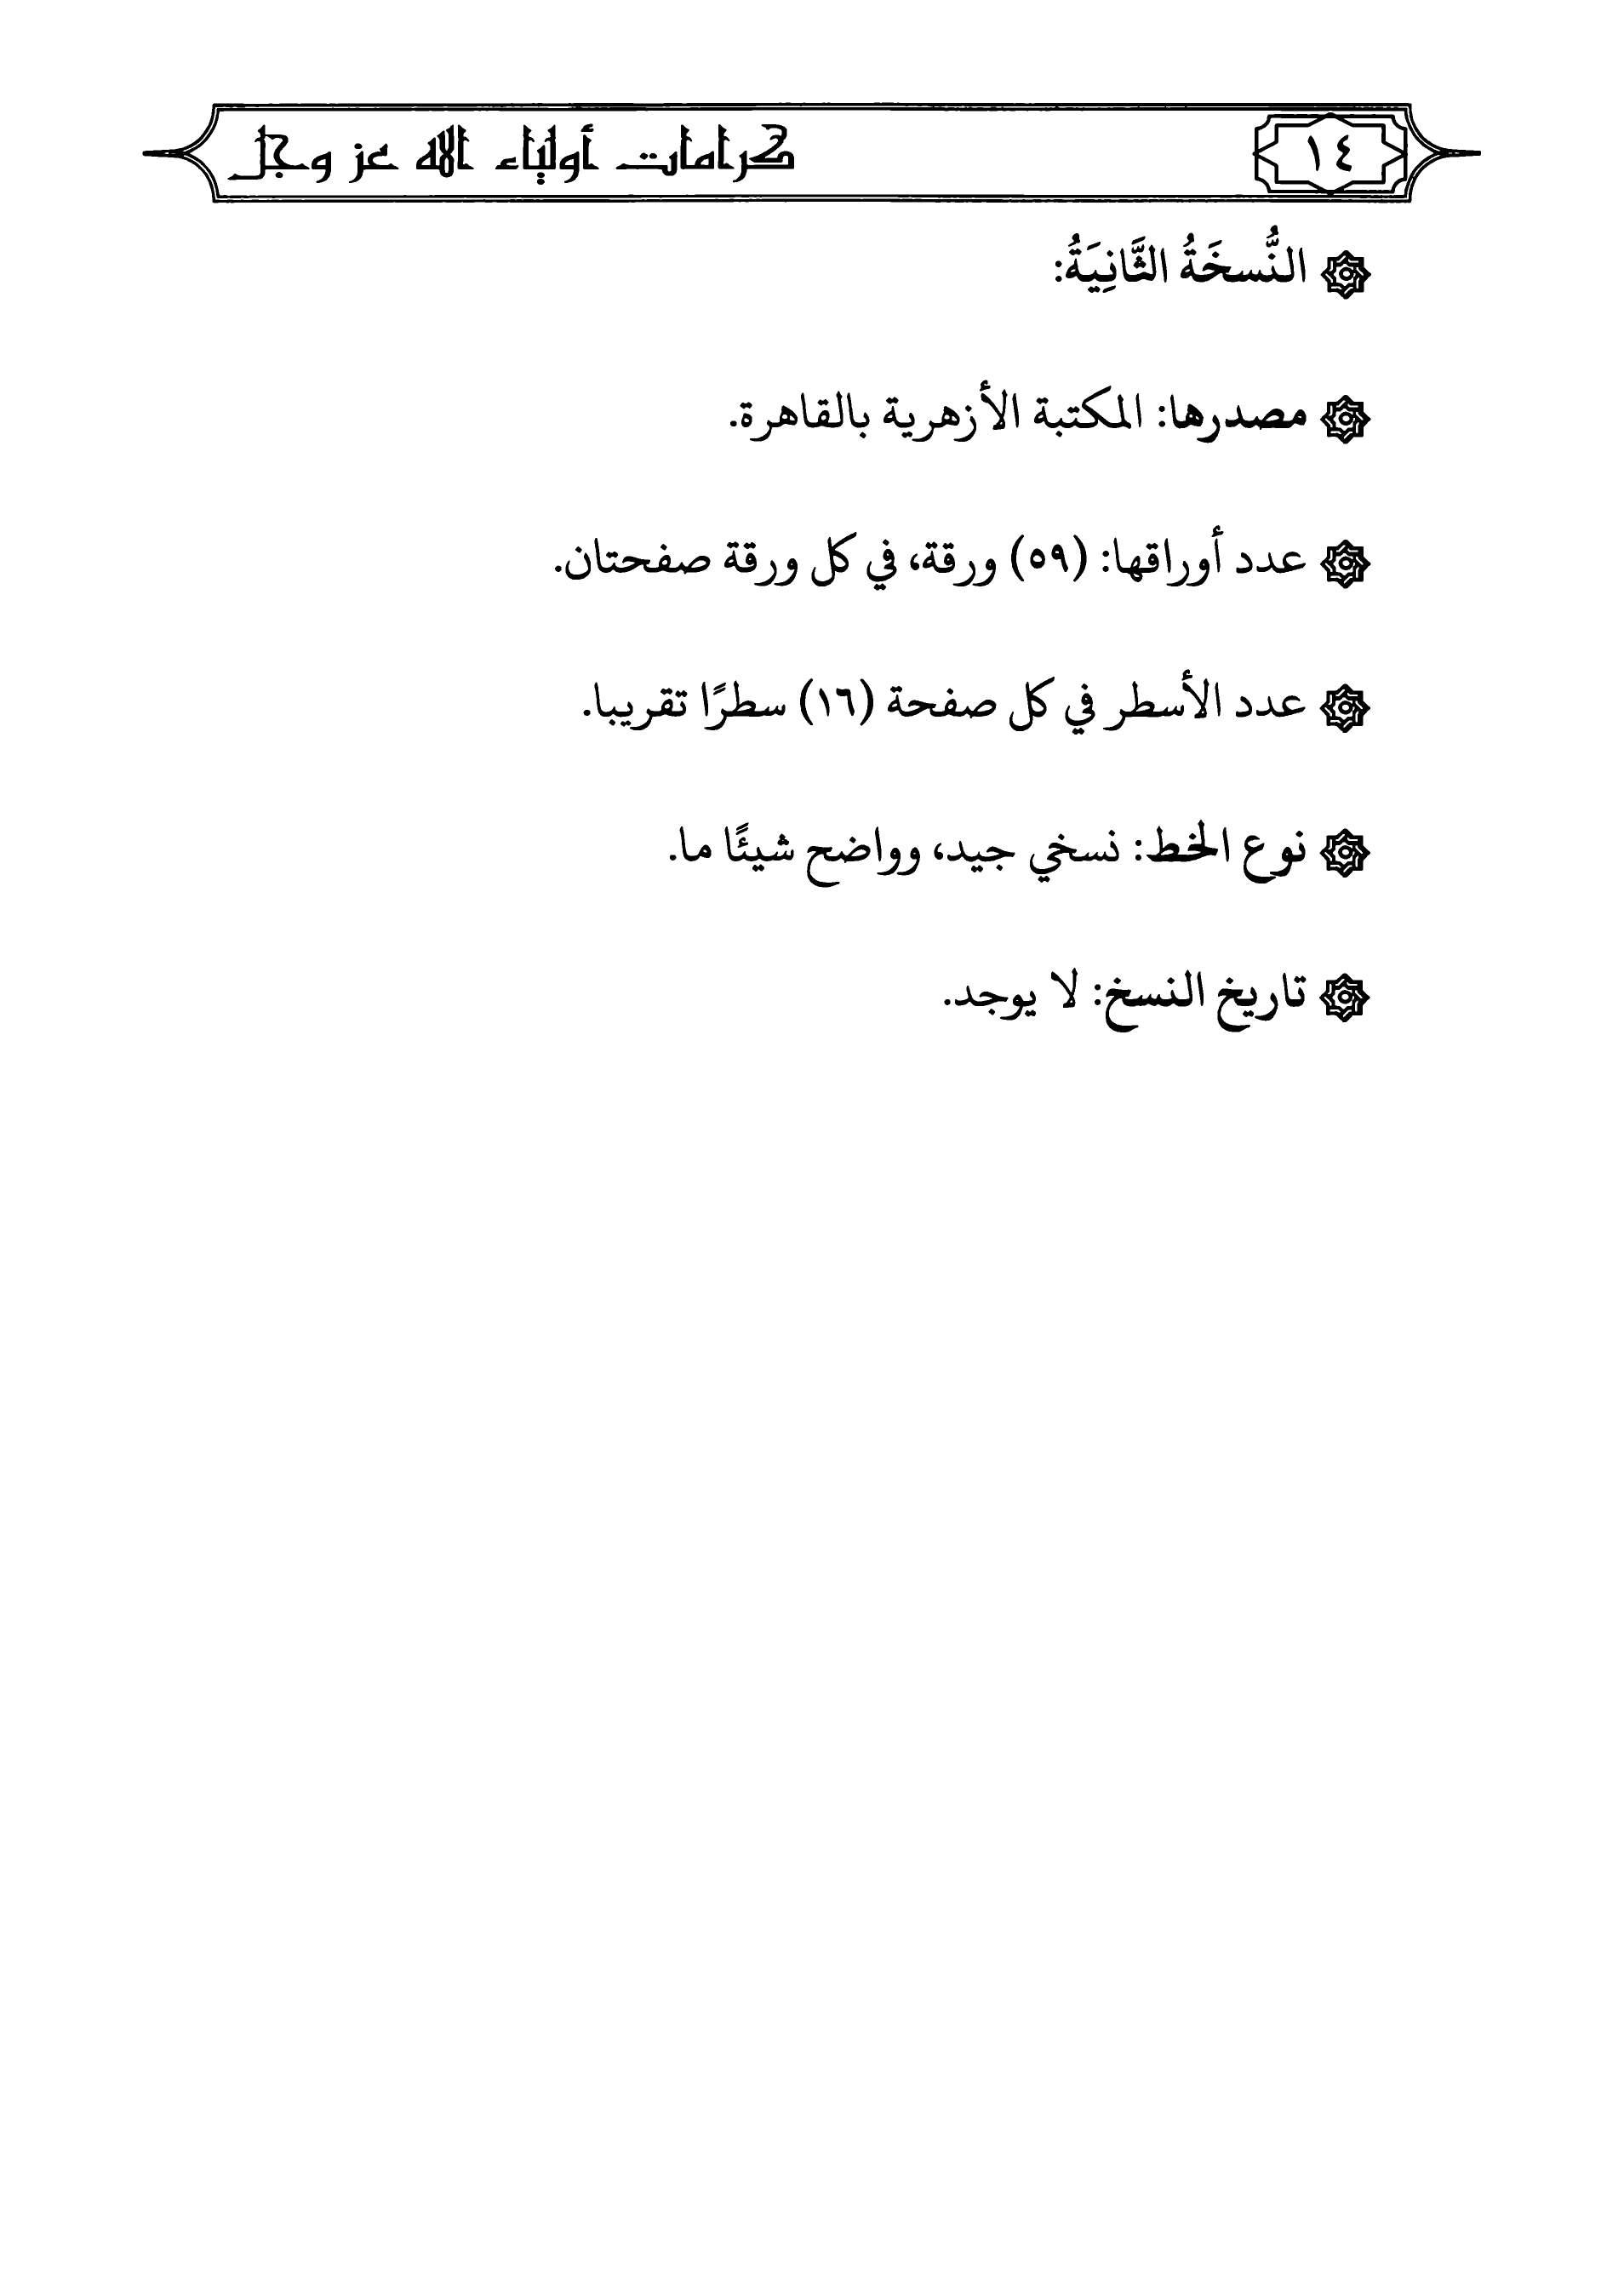 ١٤
كرامات أولياء الله عز وجل
النُّسخَةُ الثَّانِيَةُ:
مصدرها: المكتبة الأزهرية بالقاهرة.
عدد أوراقها: (٥٩) ورقة، في كل ورقة صفحتان.
عدد الأسطر في كل صفحة (١٦) سطرًا تقريبا.
نوع الخط: نسخي جيد، وواضح شيئًا ما.
تاريخ النسخ: لا يوجد.